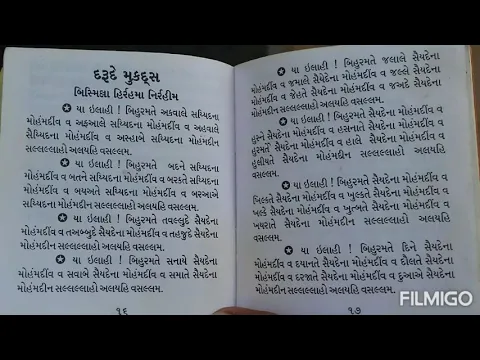 દરૂદે મુકદ્દસ
બિસ્મિલ્લા હિર્રહમા નિર્રહીમ
✪ યા ઇલાહી ! બિહુરમતે અકવાલે સય્યિદના
મોહંમદીંવ વ અફઆલે સય્યિદના મોહંમદીંવ વ અહવાલે
સૈય્યિદના મોહંમદીંવ વ અસ્હાબે સય્યિદના મોહંમદીન
સલ્લલ્લાહો અલયહિ વસલ્લમ.
✪ યા ઇલાહી ! બિહુરમતે બદને સય્યિદના
મોહંમદીંવ વ બતને સય્યિદના મોહંમદીંવ વ બરકતે સય્યિદના
મોહંમદીંવ વ બયઅતે સય્યિદના મોહંમદીંવ વ બરઆએ
સય્યિદના મોહંમદીન સલ્લલ્લાહો અલયહિ વસલ્લમ.
✪ યા ઇલાહી ! બિહુરમતે તવલ્લુદે સૈયદેના
મોહંમદીંવ વ તઅબ્બુદે સૈયદેના મોહંમદીંવ વ તહજુદે સૈયદેના
મોહંમદીન સલ્લલ્લાહો અલયહિ વસલ્લમ.
✪ યા ઇલાહી ! બિહુરમતે સનાયે સૈયદેના
મોહંમદીંવ વ સવાબે સૈયદેના મોહંમદીંવ વ સમાતે સૈયદેના
મોહંમદીન સલ્લલ્લાહો અલયહિ વસલ્લમ.
૧૬
✪ યા ઇલાહી ! બિહુરમતે જલાલે સૈયદેના
મોહંમદીંવ વ જમાલે સૈયદેના મોહંમદીંવ વ જલ્લે સૈયદેના
મોહંમદીંવ વ જેહતે સૈયદેના મોહંમદીંવ વ જઅદે સૈયદેના
મોહંમદીન સલ્લલ્લાહો અલયહિ વસલ્લમ.
✪ યા ઇલાહી ! બિહુરમતે
હુસ્ને સૈયદેના મોહંમદીંવ વ હસનાતે સૈયદેના મોહંમદીંવ વ
હુરમતે સૈયદેના મોહંમદીંવ વ હાલે સૈયદેના મોહંમદીંવ વ
હુલીયતે સૈયદેના મોહંમદીન સલ્લલ્લાહો અલયહિ
વસલ્લમ.
✪ યા ઇલાહી ! બિહુરમતે સૈયદેના મોહંમદીંવ વ
ખિલ્કતે સૈયદેના મોહંમદીંવ વ ખુલ્કતે સૈયદેના મોહંમદીંવ વ
ખલ્કે સૈયદેના મોહંમદીંવ વ ખુત્બતે સૈયદેના મોહંમદીંવ વ
ખયરાતે સૈયદેના મોહંમદીન સલ્લલ્લાહો અલયહિ
વસલ્લમ.
✪ યા ઇલાહી ! બિહુરમતે દિને સૈયદેના
મોહંમદીંવ વ દયાનતે સૈયદેના મોહંમદીંવ વ દૌલતે સૈયદેના
મોહંમદીંવ વ દરજાતે સૈયદેના મોહંમદીંવ વ દુઆએ સૈયદેના
મોહંમદીન સલ્લલ્લાહો અલયહિ વસલ્લમ.
૧૭
FILMIGO